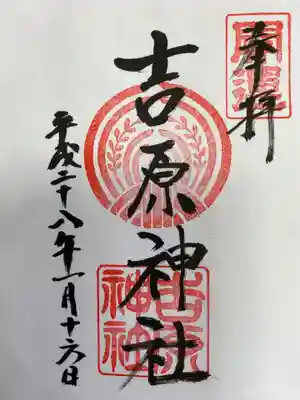 奉拝
開運
吉原神社
吉原神社
平成二十八年一月十六日